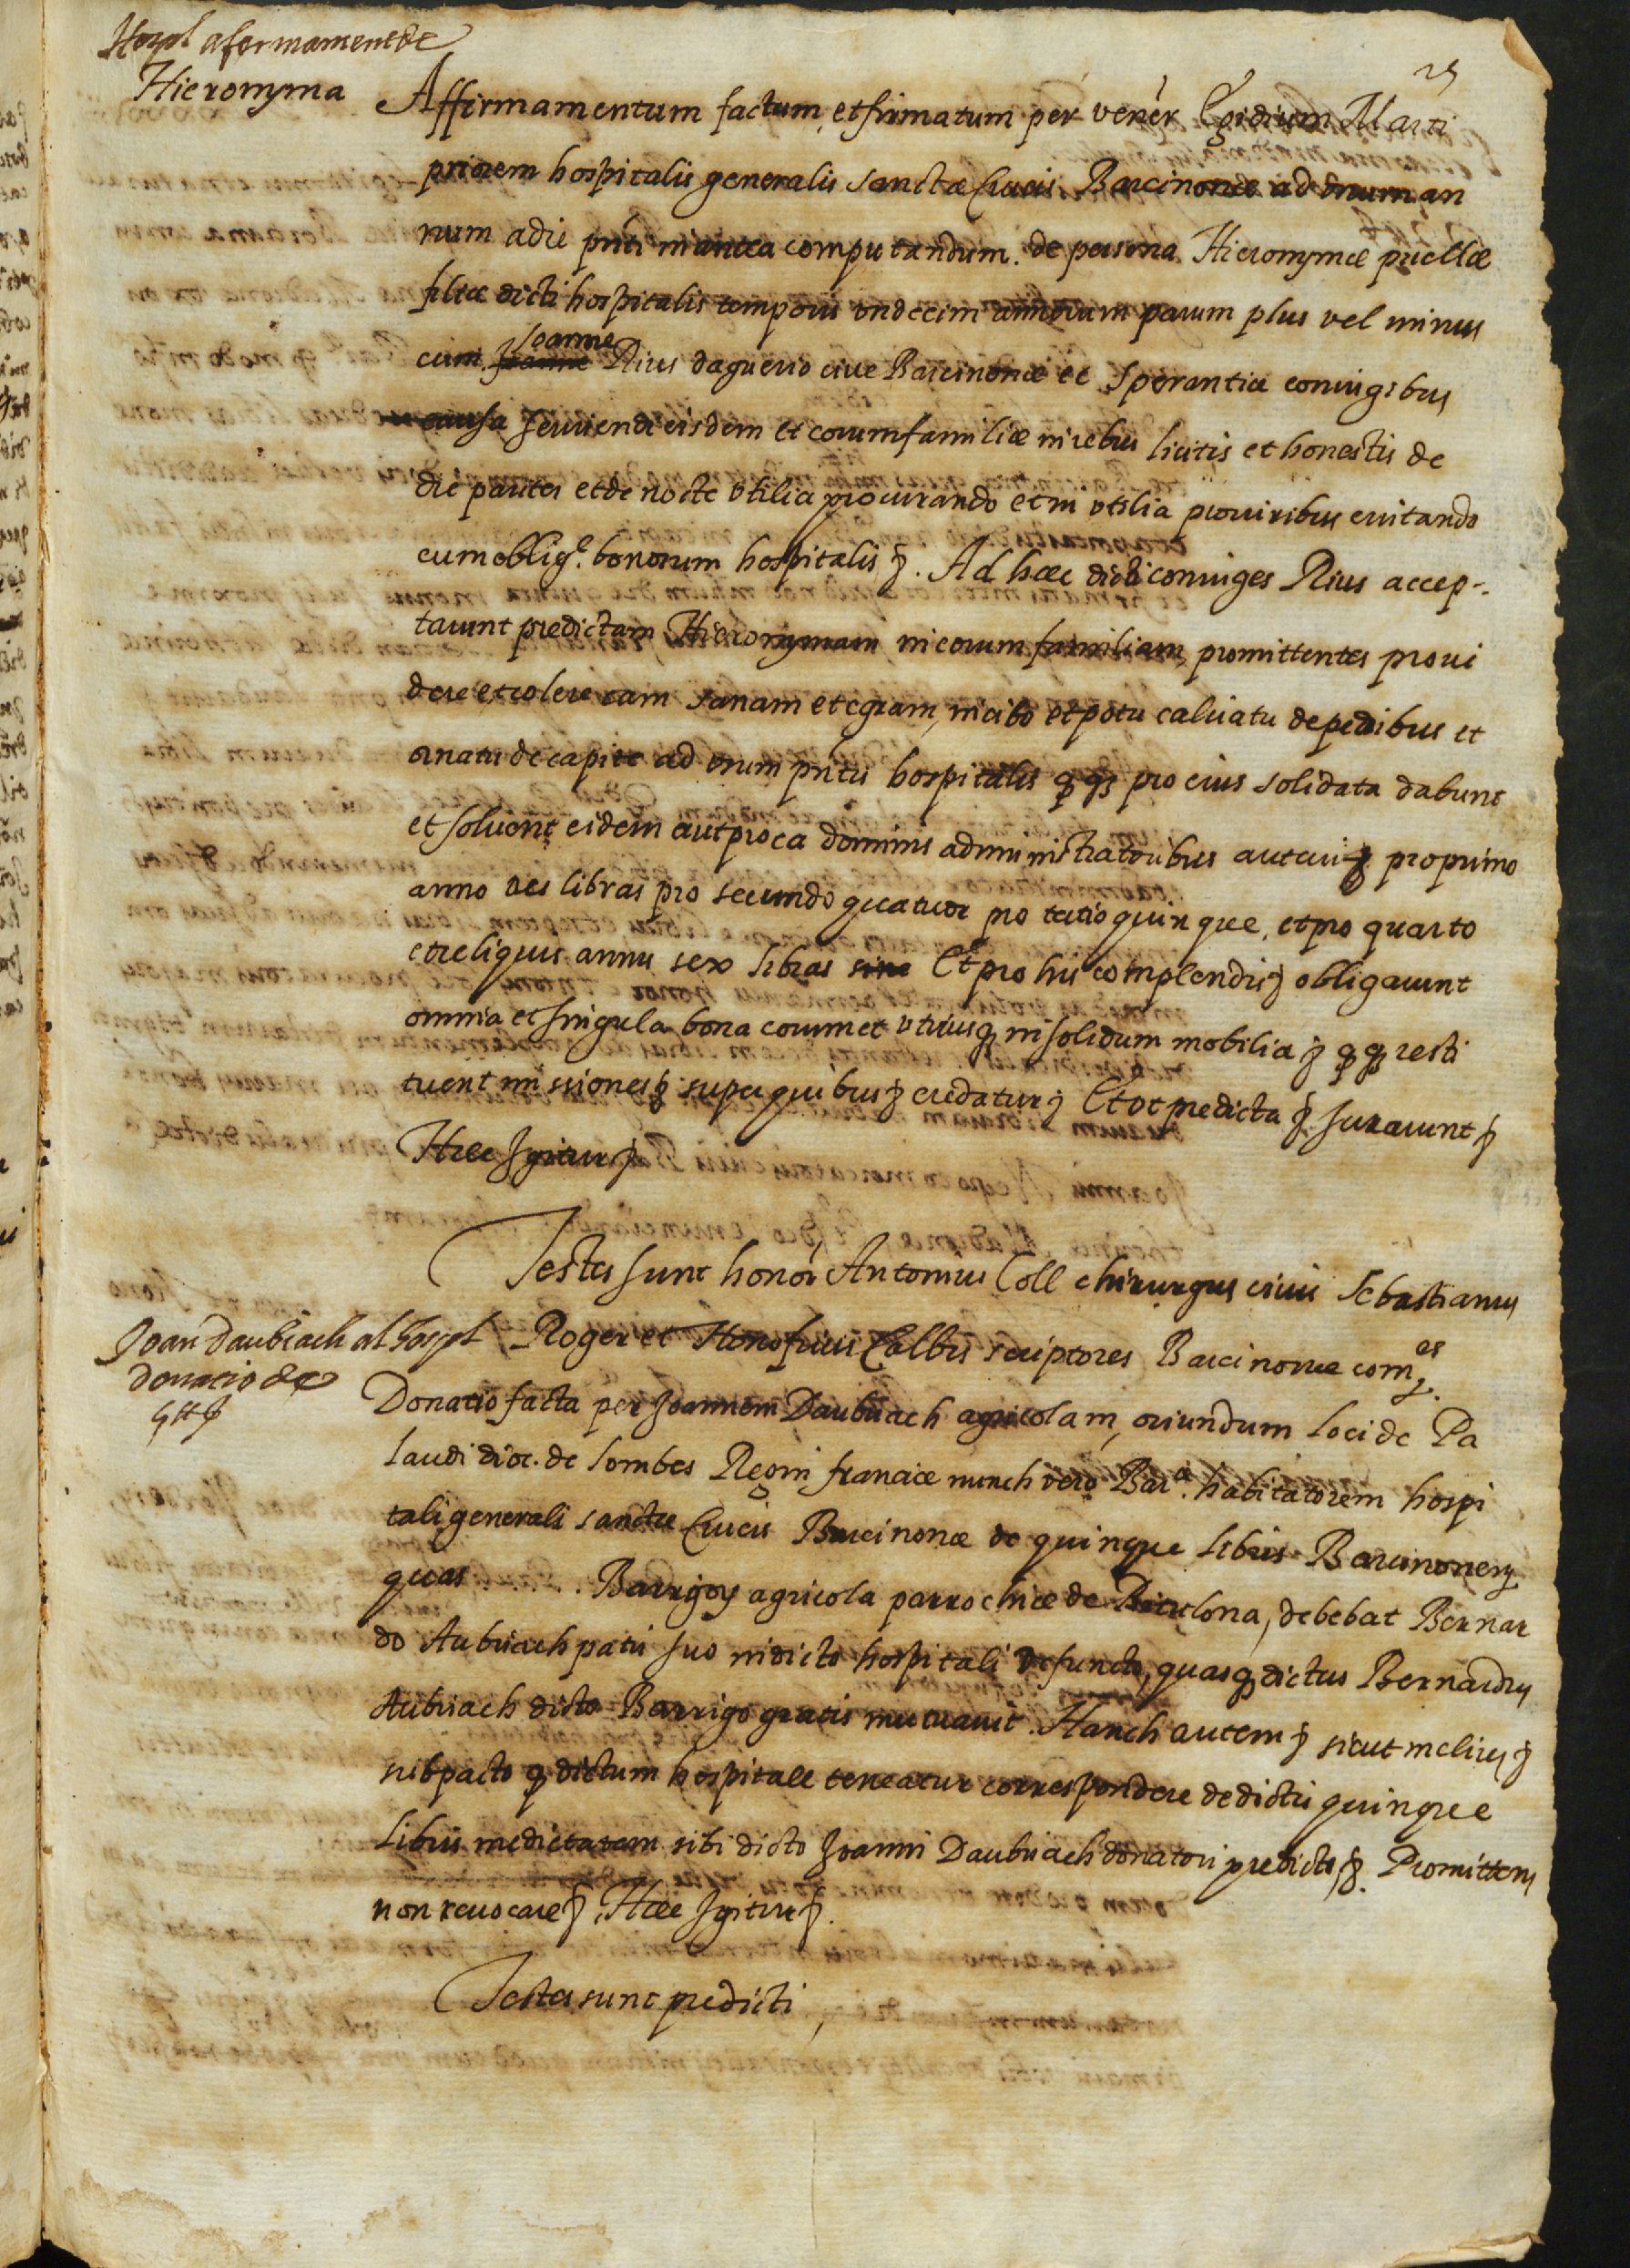 Hospl afermament de
Hieronyma
25
Affirmamentum factum et firmatum per vener Egidium Marti
priorem hospitalis generalis sanctæ Crucis Barcinonæ ad unum an
num a die pnti in antea computandum. de persona Hieronymæ puellæ
filiæ dicti hospitalis temporis undecim annorum parum plus vel minus
cum Joanne Rius daguerio cive Barcinonæ et Sperantia coniugibus
causa serviendi eisdem et eorum familiæ in rebus licitis et honestis de
die pariter et de nocte utilia procurando et in utilia pro viribus evitando
cum oblig.e bonorum hospitalis &. Ad hæc dicti coniuges Rius accep-
tarunt predictam Hieronymam in eorum familiam, promittentes provi
dere et colere eam sanam et egram, in cibo et potu calciatu de pedibus et
ornatu de capite ad usum pntis hospitalis q qs pro eius solidata dabunt
et solvent eidem aut pro ea dominis administratoribus aut cui & pro primo
anno tres libras pro secundo quatuor pro tertio quinque, et pro quarto
et reliquis annis sex libras sine Et pro his complendis & obligarunt
omnia et singula bona eorum et utriusq in solidum mobilia & q q resti
tuent missiones & super quibus & credatur & Et ut predicta & jurarunt &
Hæc Igitur &
Testes sunt honor Antonius Coll chirurgus civis Sebastianus
Roger et Honofrius Calbis scriptores Barcinonæ com.es
Joan Daubiach al hospl
donatio de
5 ℔ &
Donatio facta per Joannem Daubiach agricolam, oriundum loci de Pa
laudi dioc. de Lombes Regni franciæ nunch vero Bar.æ habitatorem hospi
tali generali sanctæ Crucis Barcinonæ de quinque libris Barcinonen
quas Barrigoy agricola parrochiæ de Bitulona, debebat Bernar
do Aubiach patri suo in dicto hospitali defuncto, quasq dictus Bernardus
Aubiach dicto Barrigo gratis mutuavit. Hanch autem & sicut melius &
sub pacto q dictum hospitale teneatur correspondere de dictis quinque
libris medietatem sibi dicto Joanni Daubiach donatori predicto &. Promittens
non revocare &. Hæc Igitur &.
Testes sunt predicti